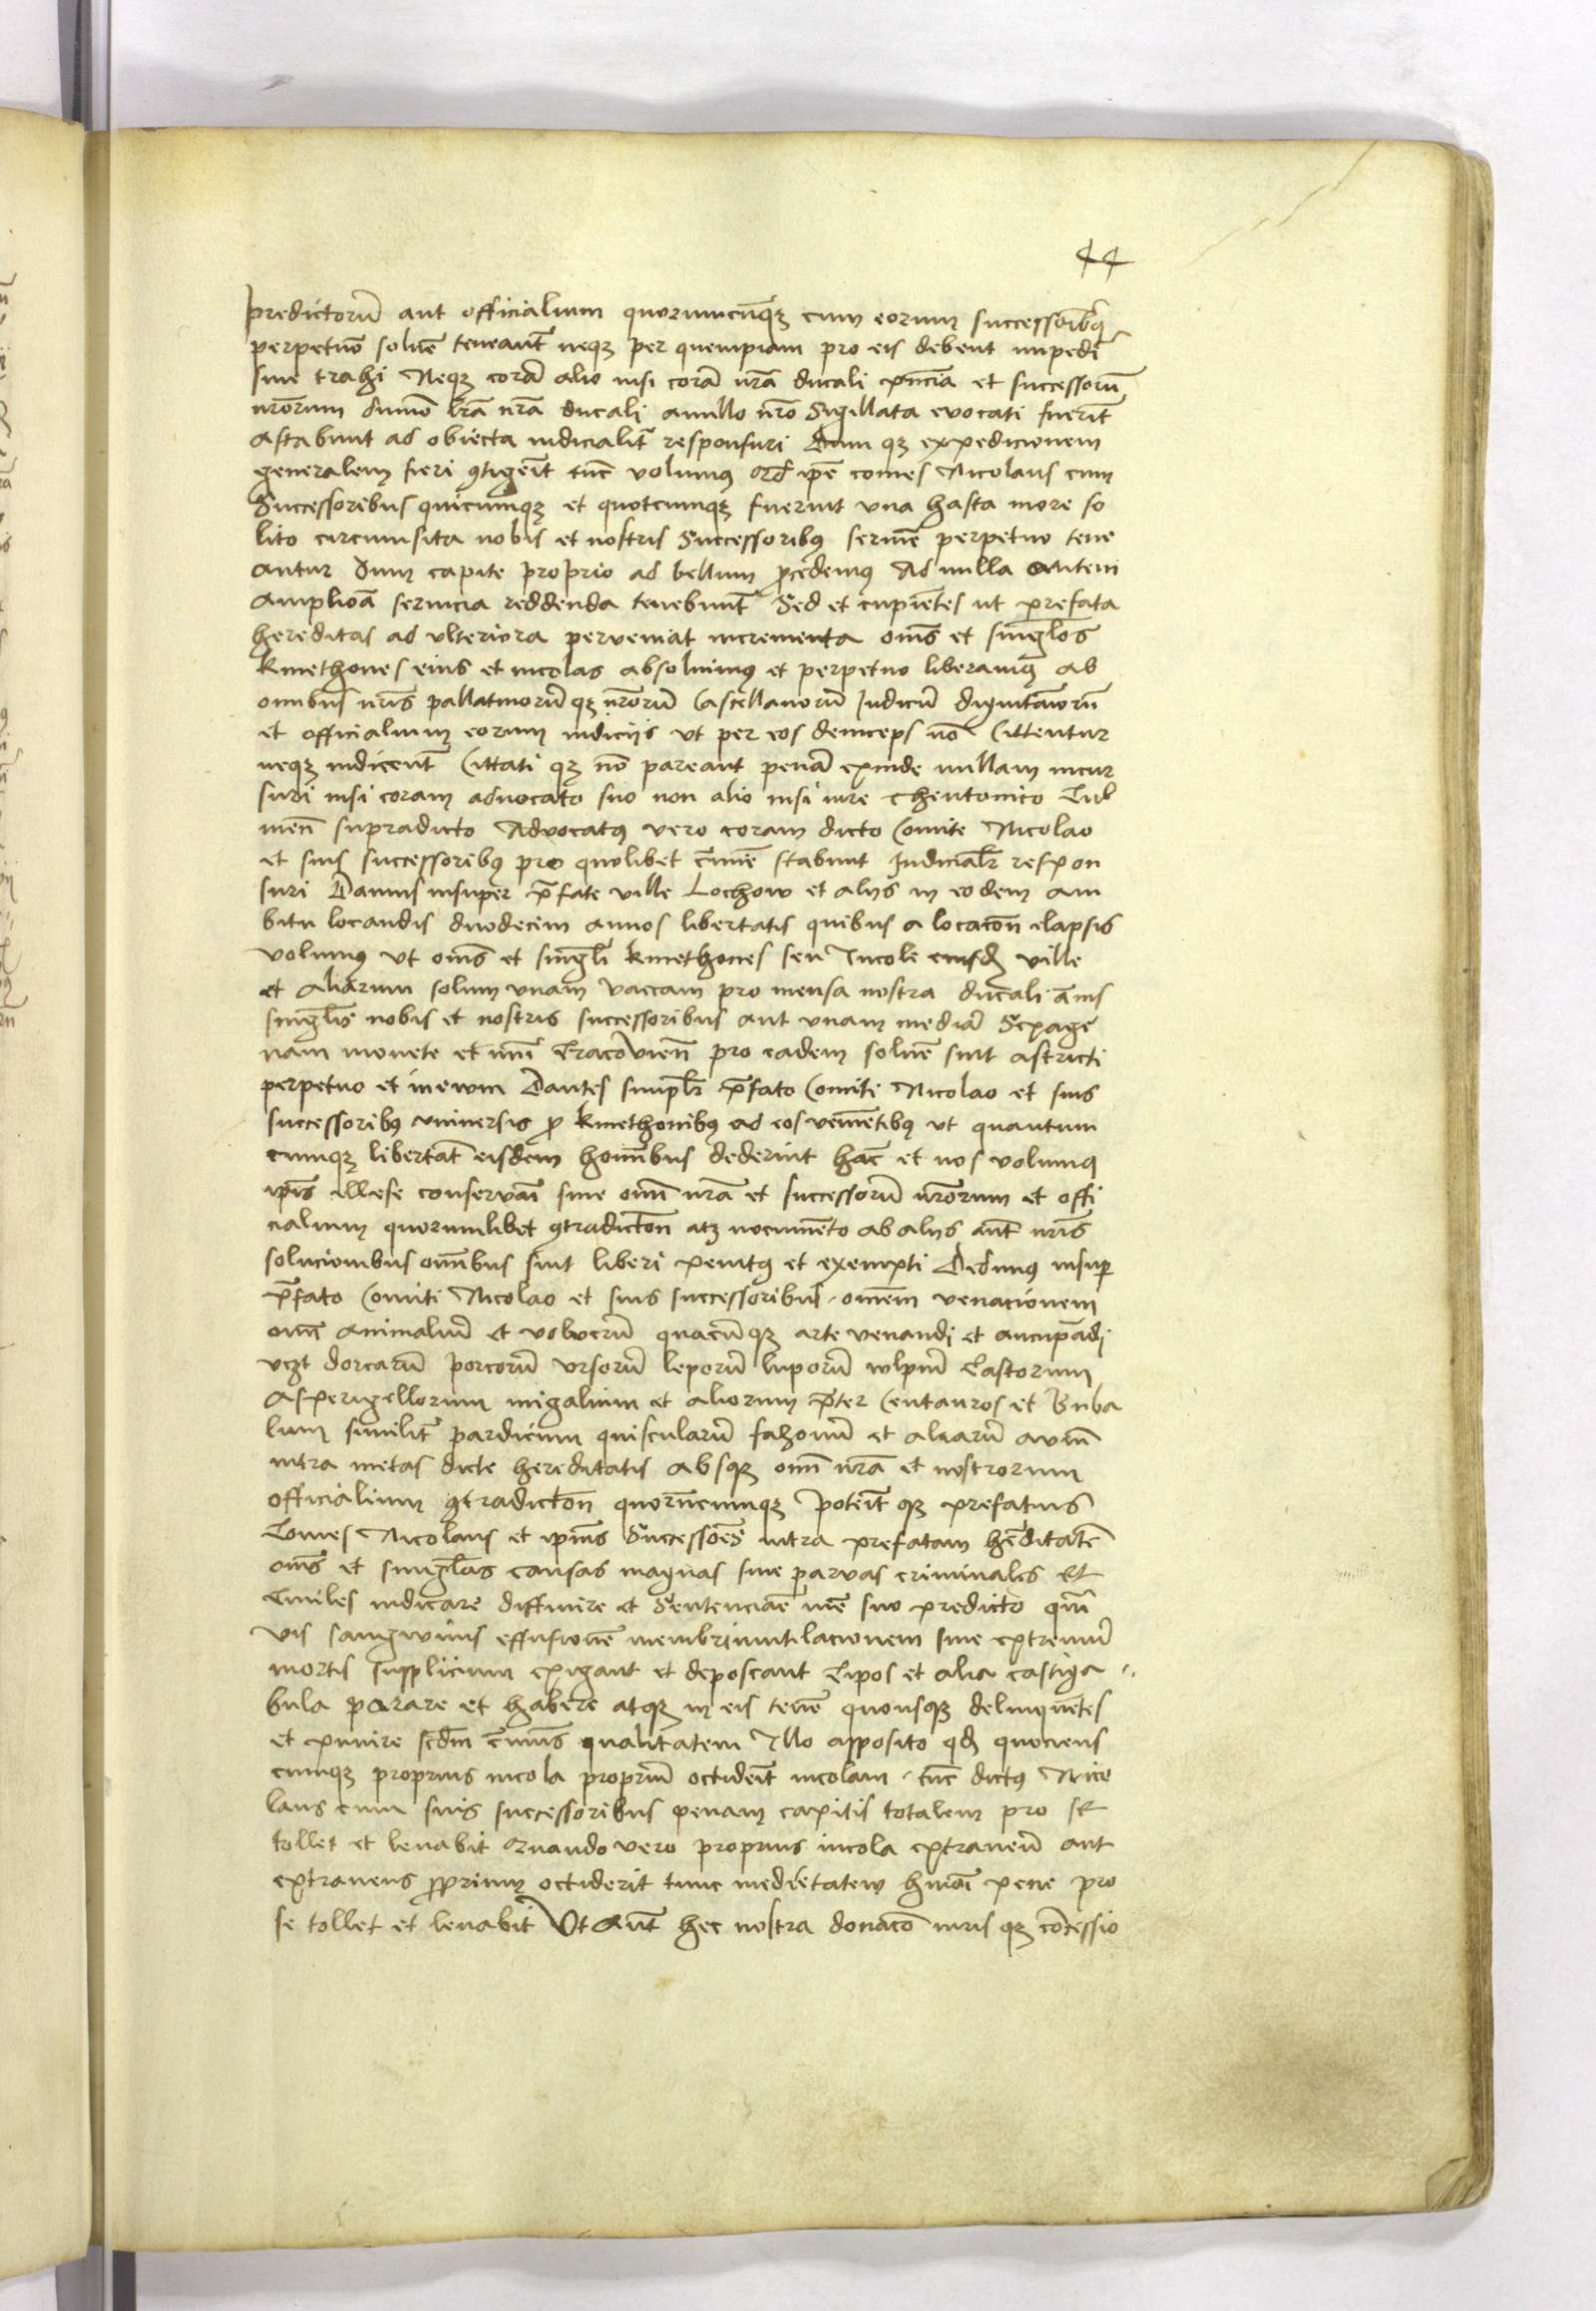 44
predictorũ aut officialium quorumcũqꝫ cum eorum successoribꝯ
perpetuo soluẽ teneant̃ neqꝫ per quempiam pro eis debent impediri
siue trahi Neqꝫ corã alio nisi corã nrã ducali pñcia et successorũ
nrõrum dumõ lrã nrã ducali anullo nrõ Sigillata euocati fuerit̃
astabunt ad obiecta iudicialit̃ responsuri Dum qꝫ expedicionem
generalem fieri ꝯtigeĩt tũc volumꝯ qd ip̃e comes Nicolaus cum
Successoribus quicumqꝫ et quotcumqꝫ fuerint vna hasta more so
lito circumsita nobis et nostris Successoribꝯ seruiẽ perpetuo tene
antur dum capite proprio ad bellum ꝓcedemꝯ Ad nulla autem
amplioã seruicia reddenda tenebunt̃ Sed et cupiẽtes ut prefata
hereditas ad vlteriora perveniat incrementa om̃s et singl̃os
kmethones eius et incolas absoluimꝯ et perpetuo liberamꝯ ab
omnibus nr̃is pallatinorũ qꝫ nrõrũ Castellanorũ Judicũ dignitariorũ
et officialium eorum iudicijs vt per eos deinceps nõ Cittentur
neqꝫ iudicent̃ Cittati qꝫ nõ pareant penã exinde nullam incur
suri nisi coram aduocato suo non alio nisi iure thentonico Cul
meñ supradicto Aduocatꝯ vero coram dicto Comite Nicolao
et suis successoribꝯ pro quolibet c̃imiẽ stabunt Judicial̃r respon
suri Damus insuper p̃fate ville Lochow et alijs in eodem am
bitu locandis duodecim annos libertatis quibus a locacoñ elapsis
volumꝯ vt om̃s et singl̃i kmethones seu Incole eiusd̃ ville
et aliarum solum vnam vaccam pro mensa nostra ducali ãnis
singl̃is nobis et nostris successoribus aut vnam mediã Sexage
nam monete et nũi Cracovieñ pro eadem soluẽ sint astricti
perpetuo et in ewm Dantes simpl̃r p̃fato Comiti Nicolao et suis
successoribꝯ vniuersis ꝓ kmethonibꝯ ad eos veniẽtibꝯ vt quantum
cumqꝫ libertat̃ eisdem homĩbus dederint hãc et nos volumꝯ
ip̃is illese conservai siue om̃i nrã et successorũ nrõrum et offi
cialium quorumlibet ꝯtradictoñ atqꝫ nocumẽto ab alijs aut̃ nr̃is
solucionibus om̃ibus sint liberi penitꝯ et exempti Dedimꝯ insuꝑ
p̃fato Comiti Nicolao et suis successoribus omẽm venacionem
om̃ animaliũ et volucrũ quacũqꝫ arte venandi et aucupãdi
vczt dorcarũ porcorũ vrsorũ leporũ luporũ wlpiũ Castorum
Asperigellorum migalium et aliorum p̃ter Centauros et Buba
lum similit̃ pardicum quiscularũ falzonũ et aliarũ auiũ
intra metas dicte hereditatis absqꝫ om̃i nrã et nostrorum
officialium ꝯtradictoñ quorũcumqꝫ poteĩt qꝫ prefatus
Comes Nicolaus et ip̃ius Successões intra prefatam hẽditatẽ
om̃s et singl̃as causas magnas siue paruas criminales et
Ciuiles iudicare diffinire et Sentenciaẽ iuẽ suo predicto qm̃
vis sangwinis effusionẽ membri mutilacionem siue extremũ
mortis supplicium exigant et deposcant Cipos et alia castiga
bula parare et habere atqꝫ in eis tenẽ quousqꝫ delinquẽtes
et punire scd̃m c̃imis qualitatem Illo apposito qd̃ quociens
cumqꝫ proprius incola propriũ occideĩt incolam tũc dictꝯ Nico
laus cum suis successoribus penam capitis totalem pro se
tollet et leuabit Quando vero proprius incola extraneũ aut
extraneus ꝓprium occiderit tunc medietatem hmõi pene pro
se tollet et leuabit Vt aut̃ hec nostra donacõ iuris qꝫ cõcessio